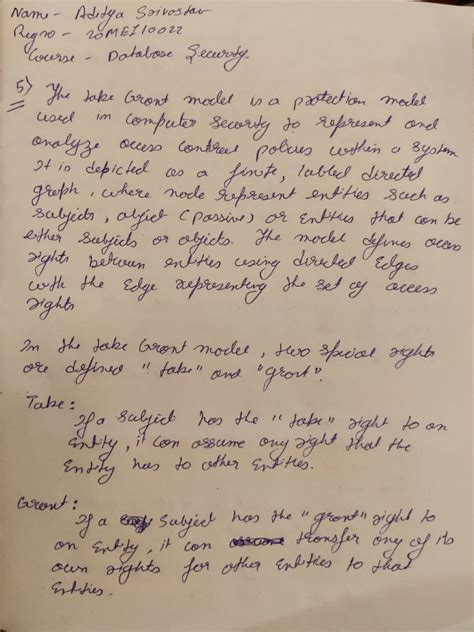 Name - Aditya Srivastav
Regno - 20MEI10022
Course - Database Security.
5) The take Grant model is a protection model
used in computer security to represent and
analyze access control policies within a system
It is depicted as a finite, labled directed
graph, where node represent entities such as
subjects, object (passive) or Entities that can be
either subjects or objects. The model defines access
rights between entities using directed Edges
with the Edge representing the set of access
rights
In the take Grant model, two special rights
are defined "take" and "grant".
Take:
If a subject has the "take" right to an
Entity, it can assume any right that the
Entity has to other Entities.
Grant:
If a Subject has the "grant" right to
an Entity, it can transfer any of its
own rights for other Entities to that
Entities.